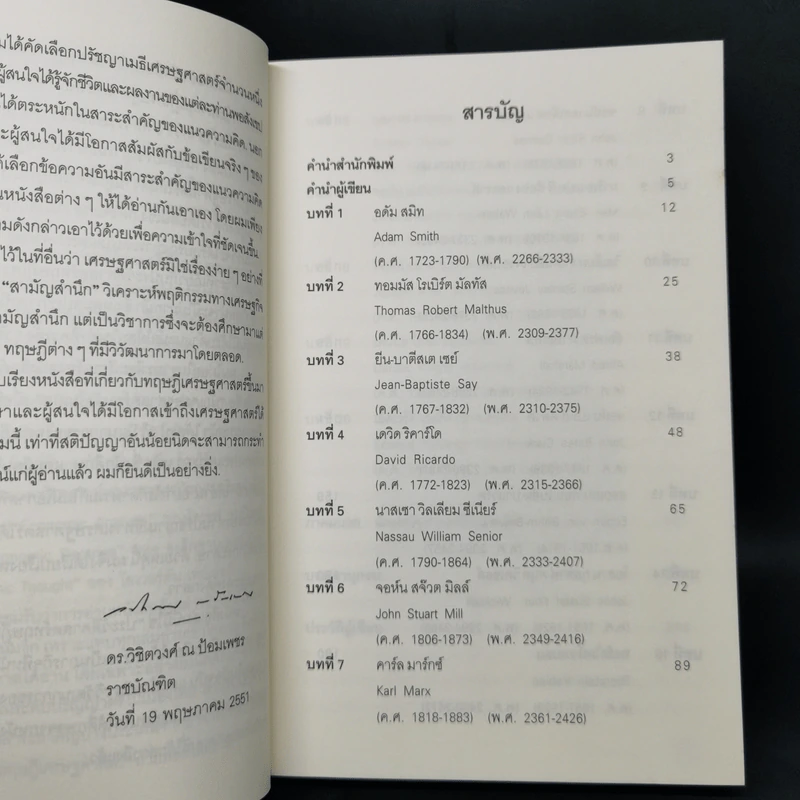 มได้คัดเลือกปรัชญาเมธีเศรษฐศาสตร์จำนวนหนึ่ง
ผู้สนใจได้รู้จักชีวิตและผลงานของแต่ละท่านพอสังเขป
ได้ตระหนักในสาระสำคัญของแนวความคิด. นอก
ะผู้สนใจได้มีโอกาสสัมผัสกับข้อเขียนจริง ๆ ของ
ด้เลือกข้อความอันมีสาระสำคัญของแนวความคิด
นหนังสือต่าง ๆ ให้ได้อ่านกันเอาเอง โดยผมเพียง
มดังกล่าวเอาไว้ด้วยเพื่อความเข้าใจที่ชัดเจนขึ้น.
ไว้ในที่อื่นว่า เศรษฐศาสตร์มิใช่เรื่องง่าย ๆ อย่างที่
"สามัญสำนึก" วิเคราะห์พฤติกรรมทางเศรษฐกิจ
ามัญสำนึก แต่เป็นวิชาการซึ่งจะต้องศึกษามาแต่
ทฤษฎีต่าง ๆ ที่มีวิวัฒนาการมาโดยตลอด.
บเรียงหนังสือที่เกี่ยวกับทฤษฎีเศรษฐศาสตร์ขึ้นมา
ษาและผู้สนใจได้มีโอกาสเข้าถึงเศรษฐศาสตร์ได้
มนี้ เท่าที่สติปัญญาอันน้อยนิดจะสามารถกระทำ
น์แก่ผู้อ่านแล้ว ผมก็ยินดีเป็นอย่างยิ่ง.
ดร.วิชิตวงศ์ ณ ป้อมเพชร
ราชบัณฑิต
วันที่ 19 พฤษภาคม 2551
สารบัญ
คำนำสำนักพิมพ์ 3
คำนำผู้เขียน 5
บทที่ 1 อดัม สมิท 12
Adam Smith
(ค.ศ. 1723-1790) (พ.ศ. 2266-2333)
บทที่ 2 ทอมมัส โรเบิร์ต มัลทัส 25
Thomas Robert Malthus
(ค.ศ. 1766-1834) (พ.ศ. 2309-2377)
บทที่ 3 ยีน-บาตีสเต เซย์ 38
Jean-Baptiste Say
(ค.ศ. 1767-1832) (พ.ศ. 2310-2375)
บทที่ 4 เดวิด ริคาร์โด 48
David Ricardo
(ค.ศ. 1772-1823) (พ.ศ. 2315-2366)
บทที่ 5 นาสเซา วิลเลียม ซีเนียร์ 65
Nassau William Senior
(ค.ศ. 1790-1864) (พ.ศ. 2333-2407)
บทที่ 6 จอห์น สจ๊วต มิลล์ 72
John Stuart Mill
(ค.ศ. 1806-1873) (พ.ศ. 2349-2416)
บทที่ 7 คาร์ล มาร์กซ์ 89
Karl Marx
(ค.ศ. 1818-1883) (พ.ศ. 2361-2426)